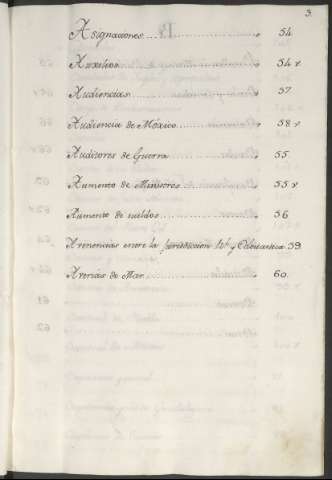 3.
Asignaciones 54
Auxilios 54 v
Audiencias 57
Audiencia de México 58 v
Auditores de Guerra 55
Aumento de Ministros 55 v
Aumento de sueldos 56
Avenencias entre la Jurisdiccion Rl. y Eclesiastica 59
Averias de Mar 60